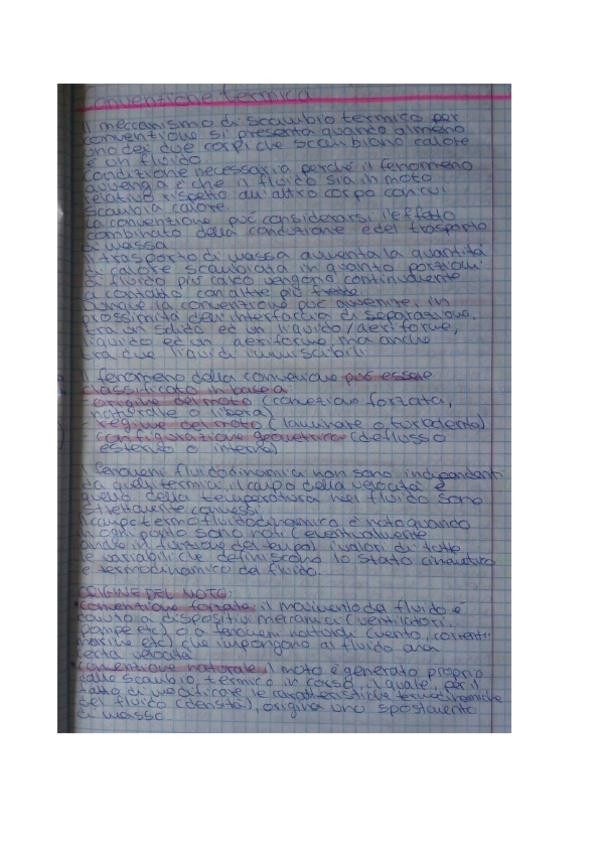 convenzione termica
Il meccanismo di scambio termico per
convenzione si presenta quando almeno
uno dei due corpi che scambiano calore
è un fluido
condizione necessaria perché il fenomeno
avvenga è che il fluido sia in moto
relativo rispetto all'altro corpo con cui
scambia calore.
La convenzione può considerarsi l'effetto
combinato della conduzione e del trasporto
di massa
Il trasporto di massa aumenta la quantità
di calore scambiata in quanto porzioni
di fluido più caldo vengono continuamente
a contatto con altre più fredde.
Dunque la convenzione può avvenire, in
prossimità dell'interfaccia di separazione,
tra un solido ed un liquido/aeriforme,
liquido ed un aeriforme, ma anche
tra due liquidi immiscibili
Il fenomeno della convezione può essere
classificato in base a:
origine del moto (convezione forzata,
naturale o libera)
regime del moto (laminare o turbolento)
configurazione geometrica (deflusso
esterno o interno)
I fenomeni fluidodinamici non sono indipendenti
da quelli termici, il campo della velocità e
quello della temperatura nel fluido sono
strettamente connessi
Il campo termofluidodinamico è noto quando
in ogni punto sono noti (eventualmente
anche in funzione del tempo) i valori di tutte
le variabili che definiscono lo stato cinematico
e termodinamico del fluido.
ORIGINE DEL MOTO:
convenzione forzata: il movimento del fluido è
dovuto a dispositivi meccanici (ventilatori,
pompe etc) o a fenomeni naturali (vento, correnti
marine etc) che impongono al fluido una
certa velocità
convenzione naturale: il moto è generato proprio
dallo scambio termico in corso, il quale, per il
fatto di modificare le caratteristiche termodinamiche
del fluido (densità), origina uno spostamento
di massa